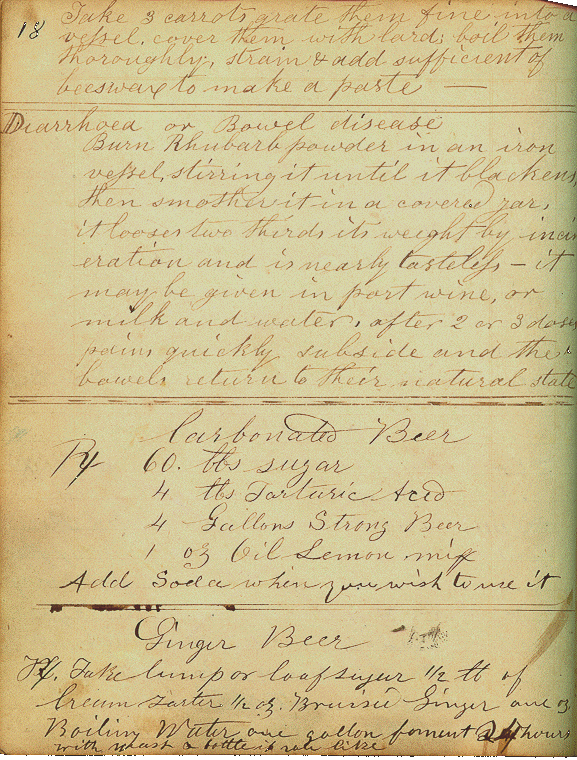 18
Take 3 carrots, grate them fine into a
vessel, cover them with lard; boil them
thoroughly, strain & add sufficient of
beeswax to make a paste —
Diarrhoea or Bowel disease
Burn Rhubarb powder in an iron
vessel, stirring it until it blackens
then smother it in a covered jar,
it looses two thirds its weight by incin
eration and is nearly tasteless — it
may be given in port wine, or
milk and water. after 2 or 3 doses
pains quickly subside and the
bowels return to their natural state
Carbonated Beer
Rx 60. lbs sugar
4 lbs Tarturic Acid
4 Gallons Strong Beer
1 oz Oil Lemon mix
Add Soda when you wish to use it
Ginger Beer
Rx. Take lump or loaf sugar 1/2 lb of
Cream Tarter 1/2 oz. Bruised Ginger one oz
Boiling Water one gallon foment 24 hours
with yeast & bottle it